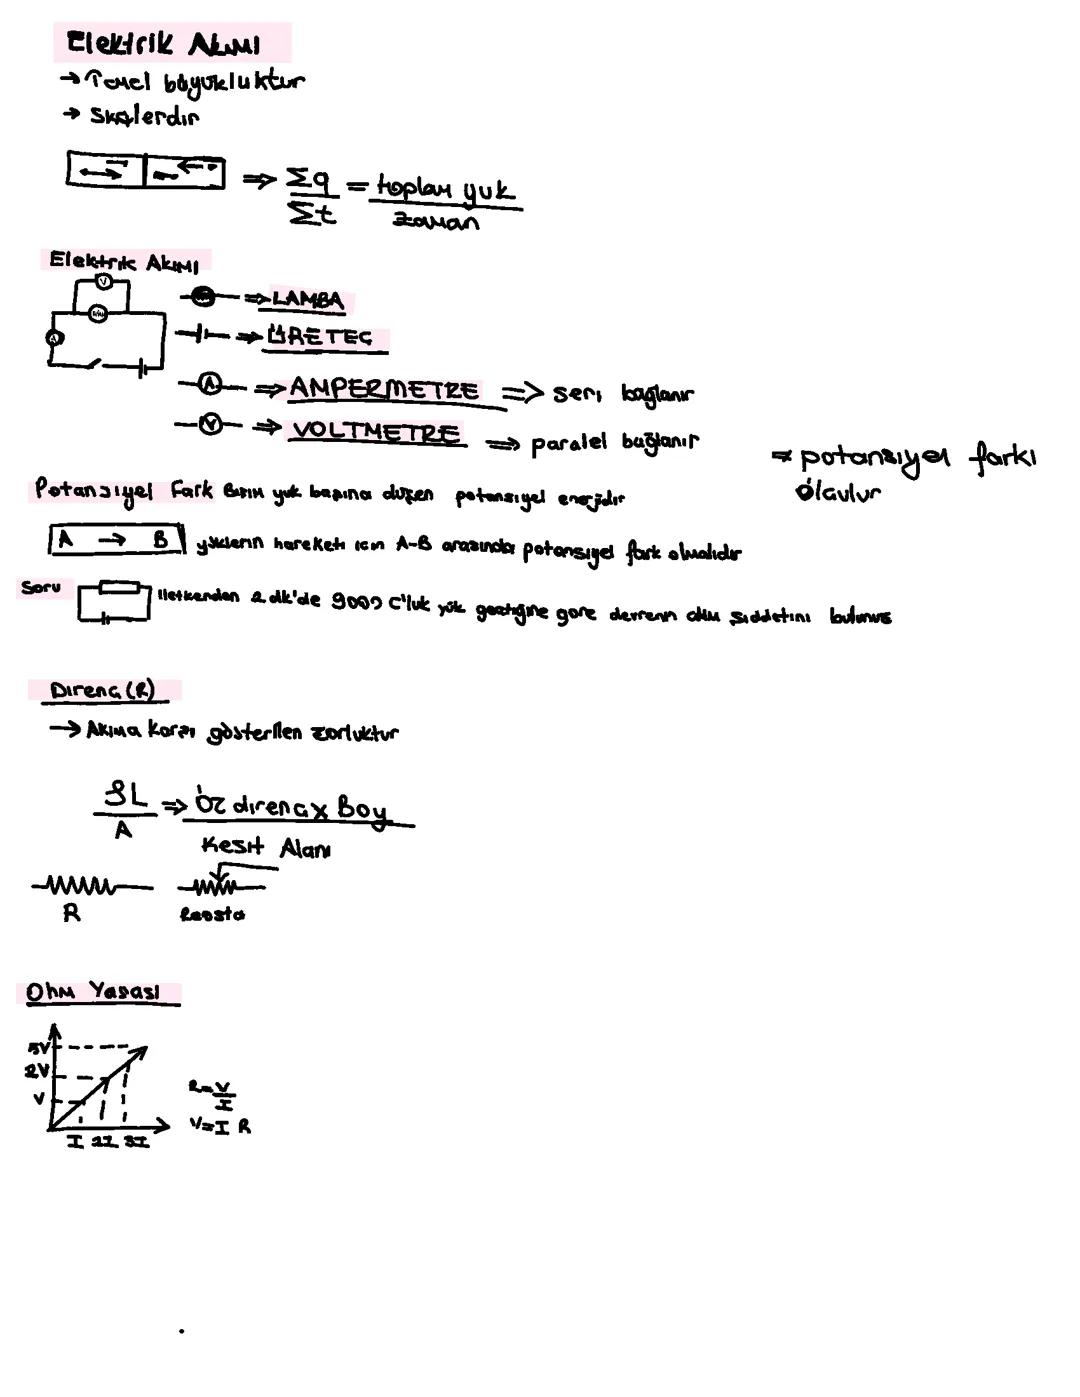 Elektrik Akımı
→ Temel büyüklüktür
→ Skalerdir
⇒ Σq = toplam yuk
Σt zaman
Elektrik Akımı
V
A
⇒ LAMBA
⇒ ÜRETEÇ
A ⇒ AMPERMETRE ⇒ seri bağlanır
V ⇒ VOLTMETRE ⇒ paralel bağlanır
⇒ potansiyel farkı
ölçülür
Potansiyel Fark Birim yuk başına düşen potansiyel enerjidir
A → B yüklerin hareketi icin A-B arasında potansiyel fark olmalıdır
Soru İletkenden 2 dk'de 9000 C'luk yük geçtiğine gore devrenin akım şiddetini bulunuz
Direnc (R)
→ Akıma karşı gösterilen zorluktur
ρL ⇒ Öz direnç x Boy
A Kesit Alanı
R Reosta
Ohm Yasası
3V
2V
V
I 2I 3I
R=V
I
V=I R